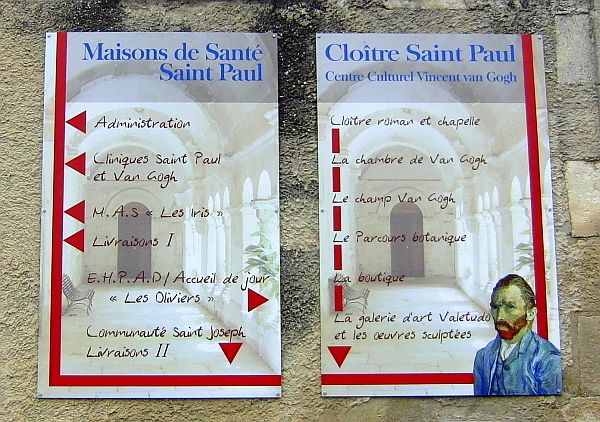 Maisons de Santé
Saint Paul
Administration
Cliniques Saint Paul
et Van Gogh
M.A.S « Les Iris »
Livraisons I
E.H.P.A.D/Accueil de jour
« Les Oliviers »
Communauté Saint Joseph
Livraisons II
Cloître Saint Paul
Centre Culturel Vincent van Gogh
Cloître roman et chapelle
La chambre de Van Gogh
Le champ Van Gogh
Le Parcours botanique
La boutique
La galerie d'art Valetudo
et les oeuvres sculptées